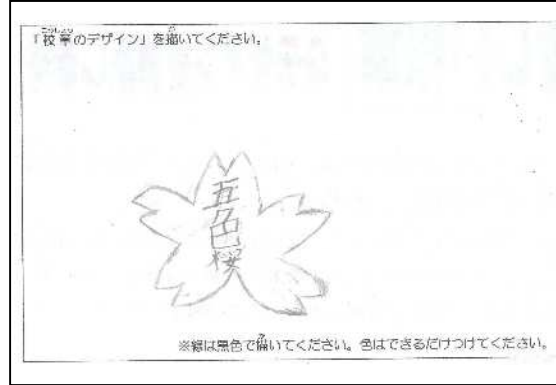 「校章のデザイン」を描いてください。
五色桜
※線は黒色で描いてください。色はできるだけつけてください。